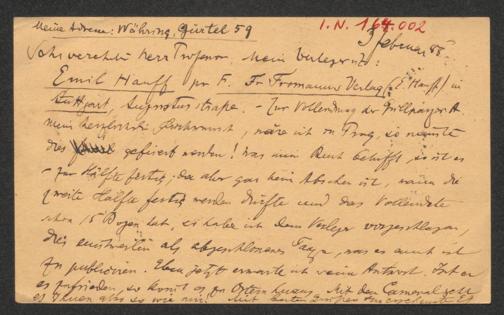 Meine Adresse: Währing, Gürtel 59
I.N. 164.002
3 Februar 88.
Sehr verehrter Herr Professor, Mein Verleger ist:
Emil Hauff pr F. Fr. Frommanns Verlag (E. Hauff) in
Stuttgart, Augustenstraße. – Zur Vollendung der Grillparzer
mein herzlichster Glückwunsch, wäre ich in Prag, so müßte
dies gefeiert werden! Was mein Buch betrifft, so ist es
– zur Hälfte fertig, da aber gar kein Absehen ist, wann die
zweite Hälfte fertig werden dürfte und das Vollendete
schon 15 Bogen hat, so habe ich dem Verleger vorgeschlagen,
dies einstweilen als abgeschlossenes Ganze, was es auch ist
zu publiciren. Eben jetzt erwarte ich seine Antwort. Ist er
es zufrieden, so kommt es zu Ostern heraus. Mit dem Carneval geht
es Ihnen also so wie mir! Mit besten Grüßen